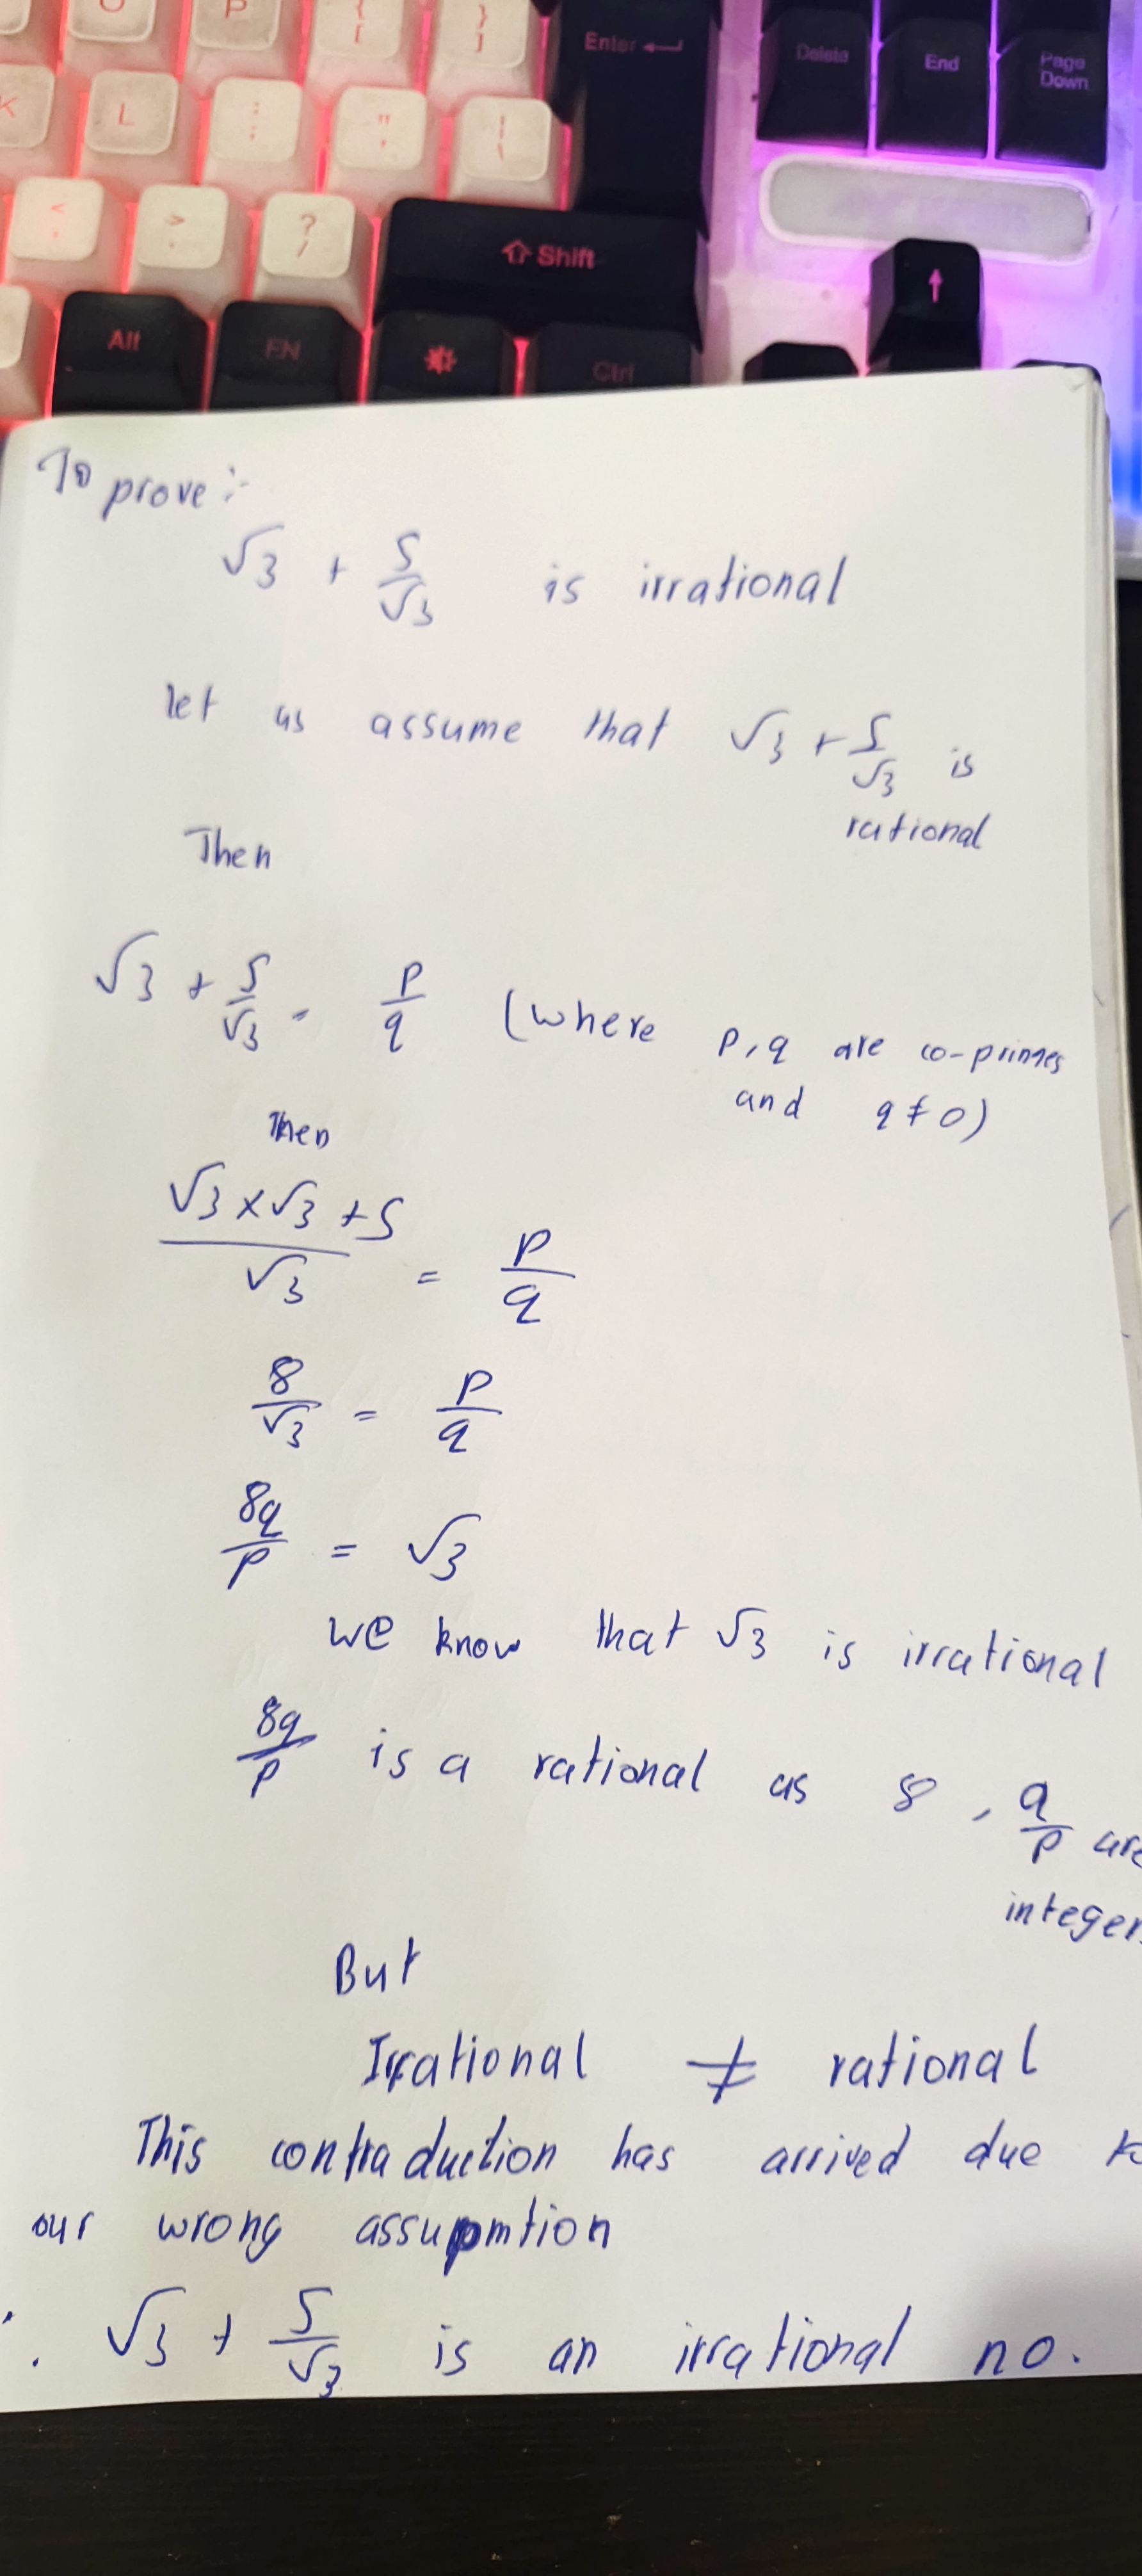 O P { [ } ] Enter Delete End Page Down
K L : ; " ' | \
< , > . ? / Shift
Alt FN Ctrl
To prove :-
√3 + 5/√3 is irrational
let us assume that √3 + 5/√3 is
rational
Then
√3 + 5/√3 = p/q (where p, q are co-primes
and q ≠ 0)
Then
(√3 × √3 + 5)/√3 = p/q
8/√3 = p/q
8q/p = √3
we know that √3 is irrational
8q/p is a rational as 8 , q/p are
integer
But
Irrational ≠ rational
This contraduction has arrived due to
our wrong assupmtion
∴ √3 + 5/√3 is an irrational no.